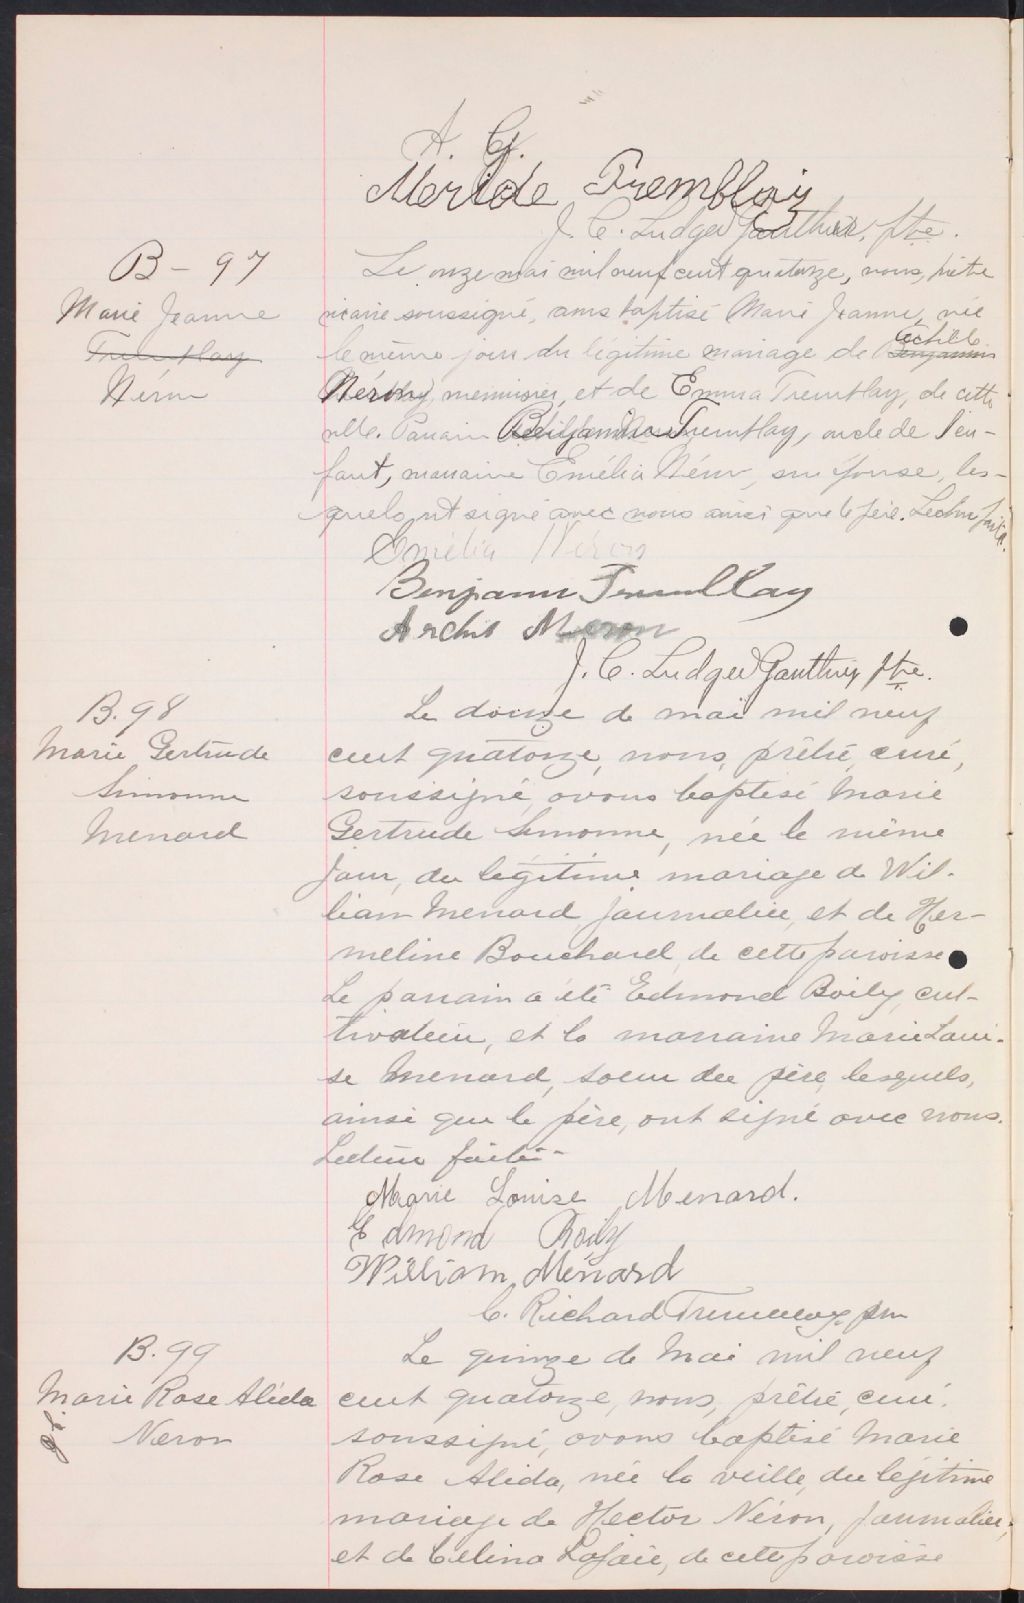 A. G.
Meride Tremblay
J. C. Ludger Gauthier, ptre.
B - 97
Marie Jeanne
Tremblay
Néron
Le onze mai mil neuf cent quatorze, nous, prêtre
vicaire soussigné, avons baptisé Marie Jeanne, née
le même jour du légitime mariage de Benjamin
Néron, menuisier, et de Emma Tremblay, de cette
ville. Parrain Benjamin Tremblay, oncle de l'en-
fant, marraine Emélia Néron, son épouse, les-
quels ont signé avec nous ainsi que le père. Lecture faite.
Emélia Néron
Benjamin Tremblay
Neron
J. C. Ludger Gauthier ptre.
B. 98
Marie Gertrude
Simonne
Menard
Le douze de mai mil neuf
cent quatorze, nous, prêtre, curé,
soussigné, avons baptisé Marie
Gertrude Simonne, née le même
jour, du légitime mariage de Wil-
liam Menard, journalier, et de Her-
meline Bouchard de cette paroisse
Le parrain a été Edmond Boily, cul-
tivateur, et la marraine Marie Loui-
se Menard, soeur du père, lesquels,
ainsi que le père, ont signé avec nous.
Lecture faite -
Marie Louise Menard.
Edmond Boily
William Ménard
C. Richard Tremblay, ptre
B. 99
Marie Rose Alida
Neron
Le quinze de Mai mil neuf
cent quatorze, nous, prêtre, curé,
soussigné, avons baptisé Marie
Rose Alida, née la veille, du légitime
mariage de Hector Néron, journalier,
et de Célina Lajoie, de cette paroisse